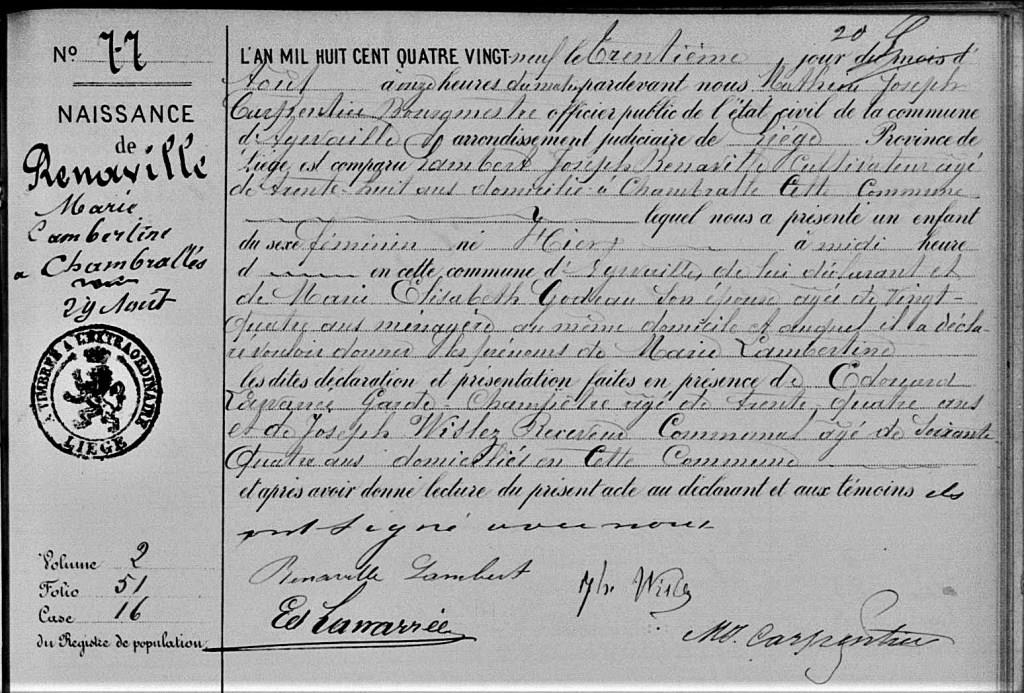 N° 77
NAISSANCE
de
Renaville
Marie
Lambertine
a Chambralles
29 Aout
A TIMBRER A L'EXTRAORDINAIRE
LIEGE
Volume 2
Folio 51
Case 16
du Registre de population
20
L'AN MIL HUIT CENT QUATRE VINGT-neuf le trentième jour du mois d'
Août à onze heures du matin pardevant nous Mathieu Joseph
Carpentier Bourgmestre officier public de l'état civil de la commune
d'Aywaille arrondissement judiciaire de Liége Province de
Liége est comparu Lambert Joseph Renaville Cultivateur agé
de trente-huit ans domicilié à Chambralle Cette Commune
lequel nous a présenté un enfant
du sexe féminin né Hier à midi heure
d en cette commune d'Aywaille, de lui déclarant et
de Marie Elisabeth Godeau son épouse agée de vingt-
quatre ans ménagère au même domicile et auquel il a décla-
ré vouloir donner les prénoms de Marie Lambertine
les dites déclaration et présentation faites en présence de Edouard
Lawarrée Garde-Champêtre agé de trente-quatre ans
et de Joseph Wislez Receveur Communal agé de soixante-
quatre ans domiciliés en Cette Commune
et après avoir donné lecture du présent acte au déclarant et aux témoins ils
ont signé avec nous
Renaville Lambert
Wislez
Ed Lawarrée
MJ. Carpentier